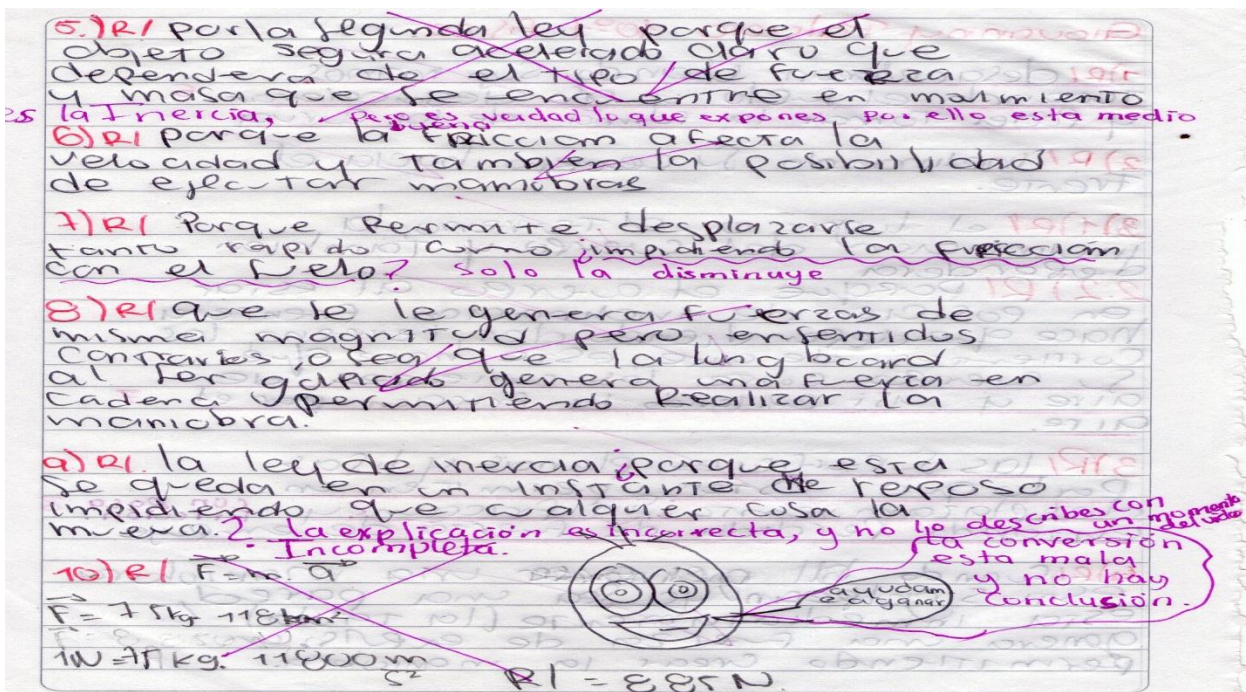 5.) R/ por la segunda ley porque el
objeto seguira acelerado claro que
dependera de el tipo de fuerza
y masa que se encuentre en movimiento
es la Inercia, pero es verdad lo que expones por ello esta medio
bueno
6) R/ porque la friccion afecta la
velocidad y tambien la posibilidad
de ejecutar maniobras
7) R/ Porque Permite desplazarse
tanto rapido como ¿impidiendo la friccion
con el suelo? solo la disminuye
8) R/ que se le genera fuerzas de
misma magnitud pero en sentidos
contrarios, o sea que la longboard
al ser golpeado genera una fuerza en
cadena permitiendo Realizar la
maniobra.
9) R/. la ley de inercia ¿porque esta
se queda en un instante de reposo
impidiendo que cualquier cosa la
mueva? la explicación es incorrecta, y no lo describes con
un momento
del video
Incompleta.
la conversión
esta mala
y no hay
conclusión.
10) R/ F = m. a
ayudam
e a ganar
F = 75kg
1N = 75 kg. 11800 m
s²
R/ = 885N